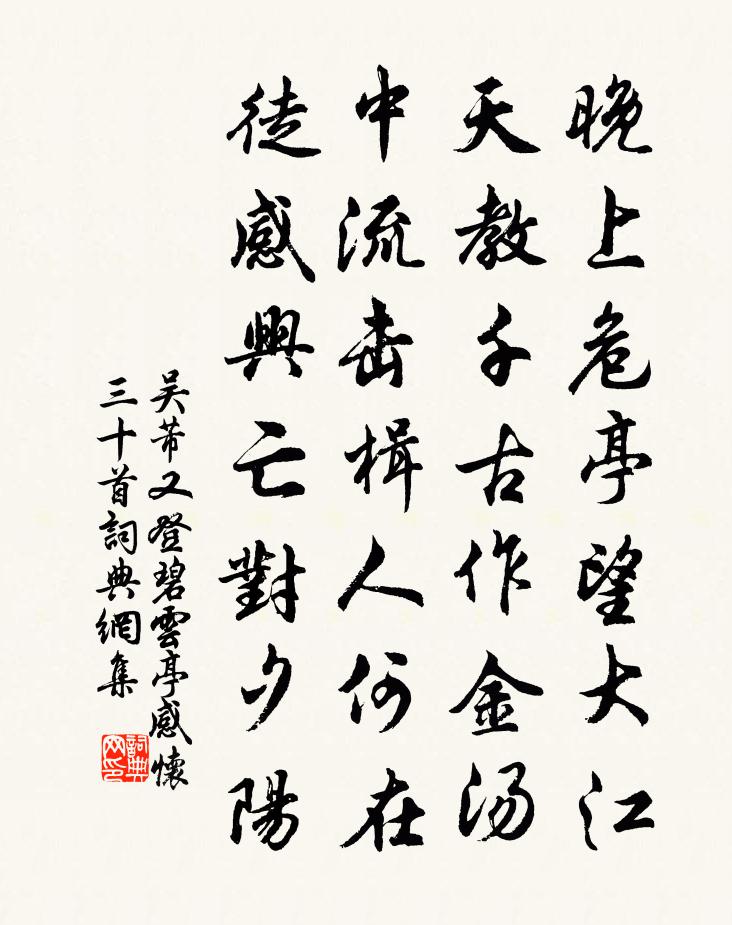 晚上危亭望大江
天教千古作金汤
中流击楫人何在
徒感興亡對夕陽
吴芾又登碧雲亭感懷
三十首詞典網集
詞典网印